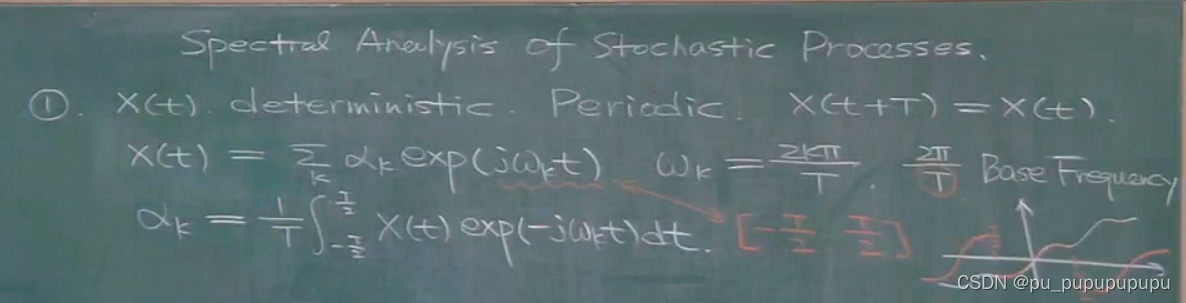 Spectral Analysis of Stochastic Processes.
①. X(t). deterministic. Periodic. X(t+T) = X(t).
X(t) = Σ_k α_k exp(jω_k t) ω_k = 2kπ/T. 2π/T Base Frequency
α_k = 1/T ∫_{-T/2}^{T/2} X(t) exp(-jω_k t)dt. [-T/2 T/2]
CSDN @pu_pupupupupu